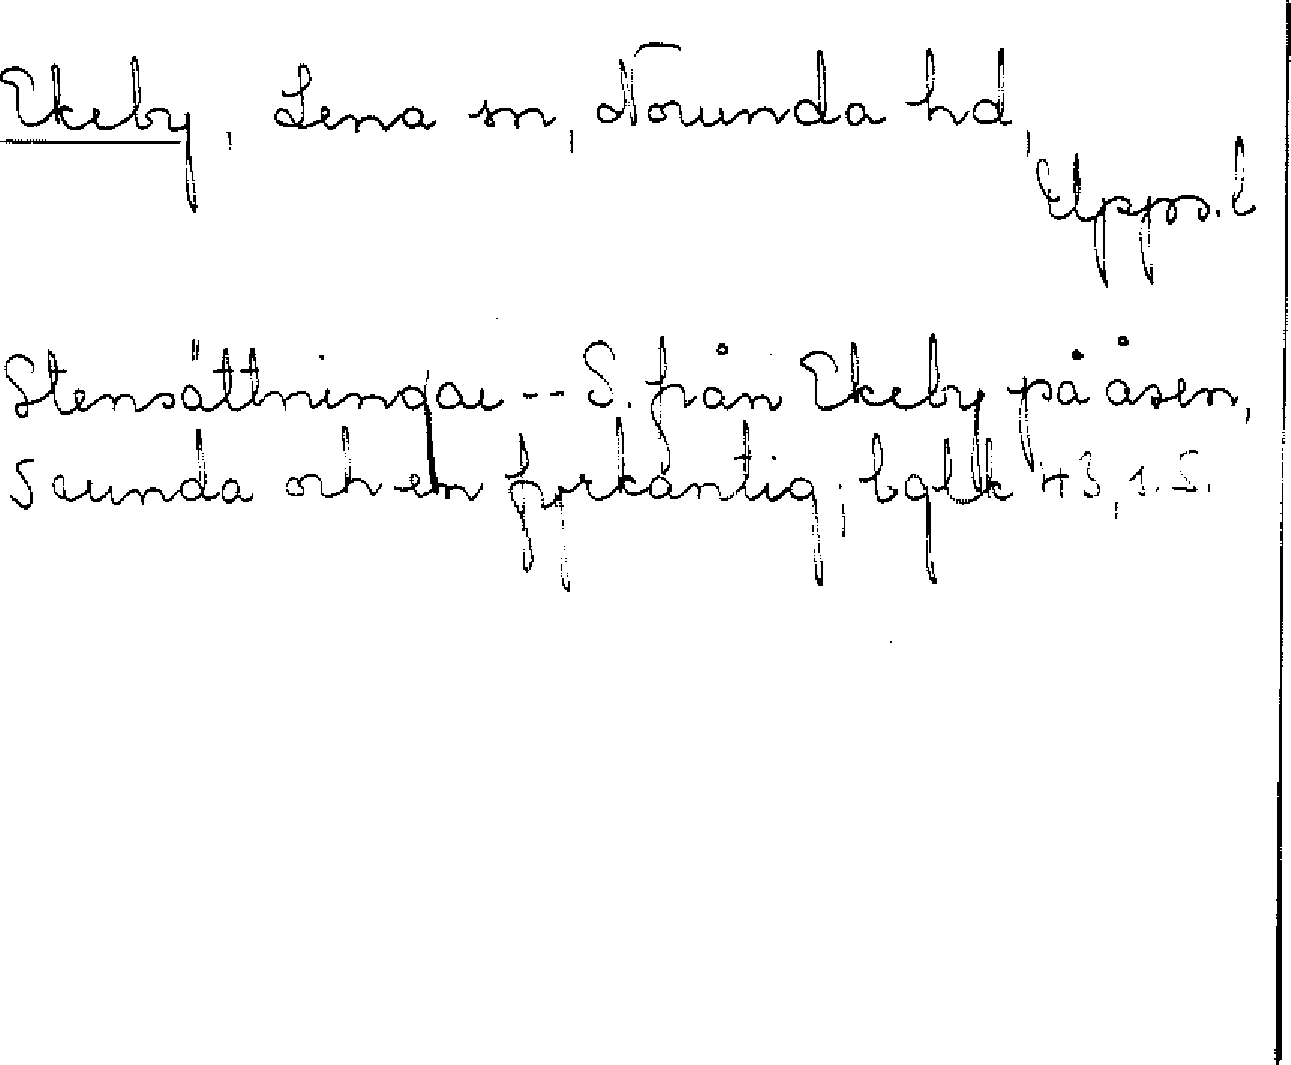 Ekeby, Lena sn, Norunda hd,
Upps. l
Stensättningar -- S. från Ekeby på åsen,
5 runda och en fyrkantig; bglk 43, s. 5.